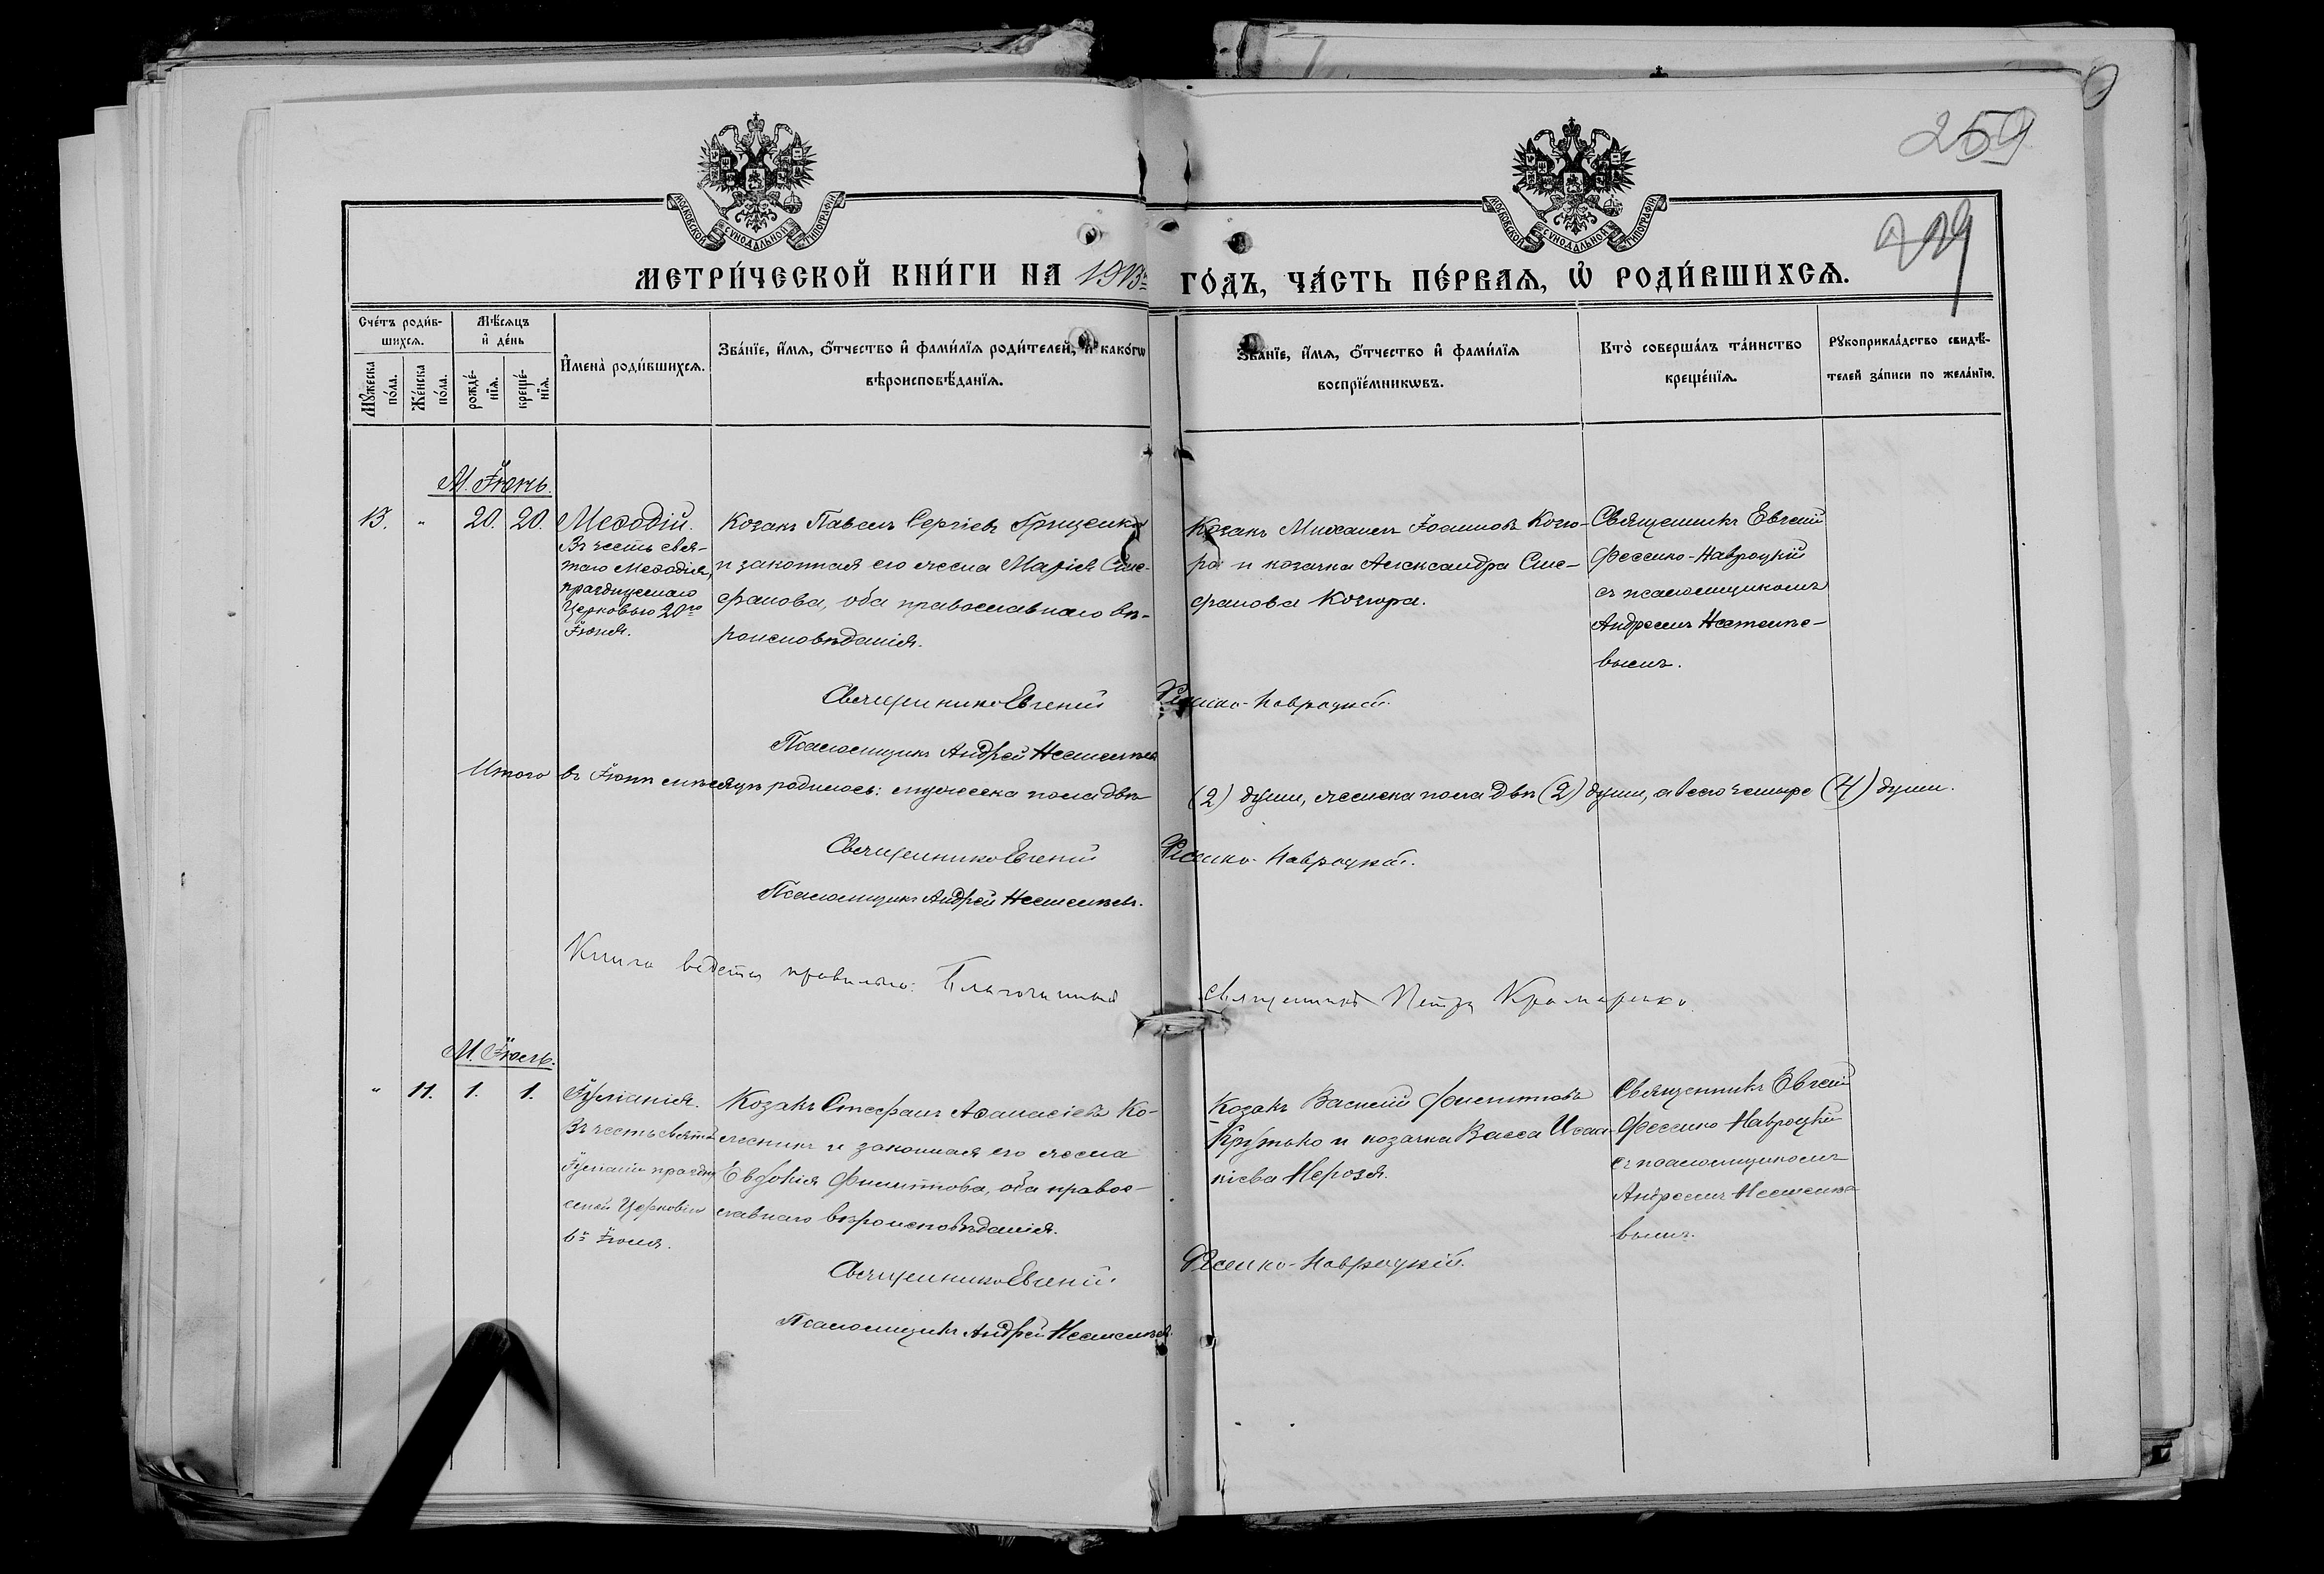 259
МОСКОВСКОЙ СѴНОДАЛЬНОЙ ТИПОГРАФІИ
МОСКОВСКОЙ СѴНОДАЛЬНОЙ ТИПОГРАФІИ
МЕТРИ́ЧЕСКОЙ КНИ́ГИ НА 1913й ГО́ДЪ, ЧА́СТЬ ПЕ́РВАѦ, Ѡ҆ РОДИ́ВШИХСѦ.
Сче́тъ роди́в-
шихсѧ.
Мꙋ́жеска по́ла.
Же́нска по́ла.
Мѣ́сѧцъ
и҆ де́нь
рожде́-
нїѧ.
креще́-
нїѧ.
И҆мена̀ роди́вшихсѧ.
Зва́нїе, и҆́мѧ, ѻ҆́тчество и҆ фами́лїѧ роди́телей, и҆ како́гѡ
вѣроисповѣ́данїѧ.
Зва́нїе, и҆́мѧ, ѻ҆́тчество и҆ фами́лїѧ
воспрїе́мникѡвъ.
Кто̀ соверша́лъ та́инство
креще́нїѧ.
Рꙋкоприкла́дство свидѣ́-
телей за́писи по жела́нїю.
М. Іюнь.
13. " 20. 20. Меѳодій.
Въ честь свя-
таго Меѳодія,
празднуемаго
Церковью 20го
Іюня.
Козакъ Павелъ Сергіевъ Грищенко
и законная его жена Марія Сте-
фанова, оба православнаго вѣ-
роисповѣданія.
Козакъ Михаилъ Іоанновъ Козю-
ра и козачка Александра Сте-
фанова Козюра.
Священникъ Евгеній
Фесенко-Навроцкій
съ псаломщикомъ
Андреемъ
вымъ.
Священникъ Евгеній Фесенко-Навроцкій.
Псаломщикъ Андрей
Итого въ Іюнѣ мѣсяцѣ родилось: мужеска пола двѣ (2) души, женска пола двѣ (2) души, а всего четыре (4) души.
Священникъ Евгеній Фесенко-Навроцкій.
Псаломщикъ Андрей
Книга ведется правильно: Благочинный священникъ Петръ Крамаренко.
М. Іюль.
" 11. 1. 1. Іуліанія.
Въ честь святой
Іуліаніи праздну
емой Церковію
Іюля.
Козакъ Стефанъ Аѳанасіевъ Ко-
лесникъ и законная его жена
Евдокія Филиппова, оба право-
славнаго вѣроисповѣданія.
Козакъ Василій Филипповъ
Крутько и козачка Васса Исаа-
кіева Нерозя.
Священникъ Евгеній
Фесенко Навроцкій
съ псаломщикомъ
Андреемъ
вымъ.
Священникъ Евгеній Фесенко-Навроцкій.
Псаломщикъ Андрей